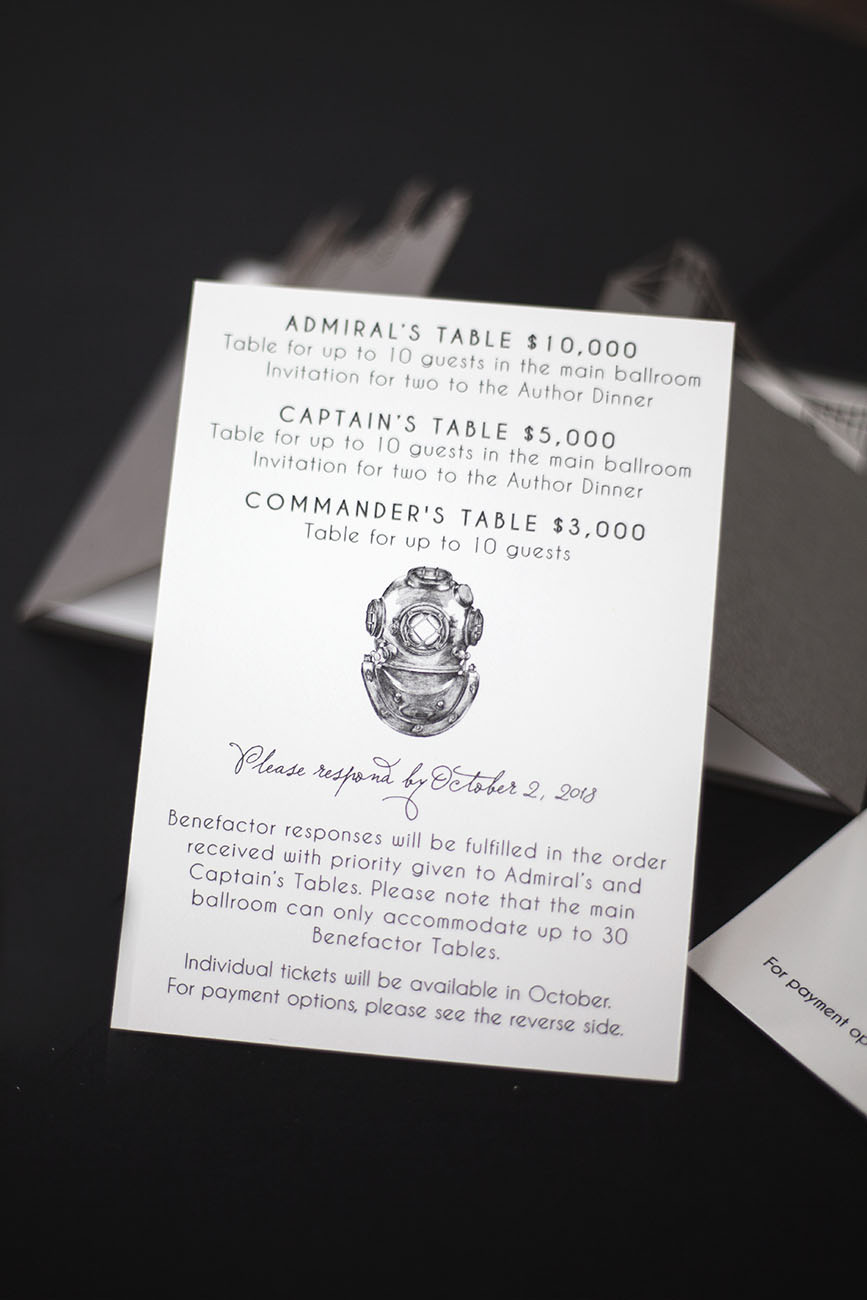 ADMIRAL'S TABLE $10,000
Table for up to 10 guests in the main ballroom
Invitation for two to the Author Dinner
CAPTAIN'S TABLE $5,000
Table for up to 10 guests in the main ballroom
Invitation for two to the Author Dinner
COMMANDER'S TABLE $3,000
Table for up to 10 guests
Please respond by October 2, 2018
Benefactor responses will be fulfilled in the order
received with priority given to Admiral's and
Captain's Tables. Please note that the main
ballroom can only accommodate up to 30
Benefactor Tables.
Individual tickets will be available in October.
For payment options, please see the reverse side.
For payment op